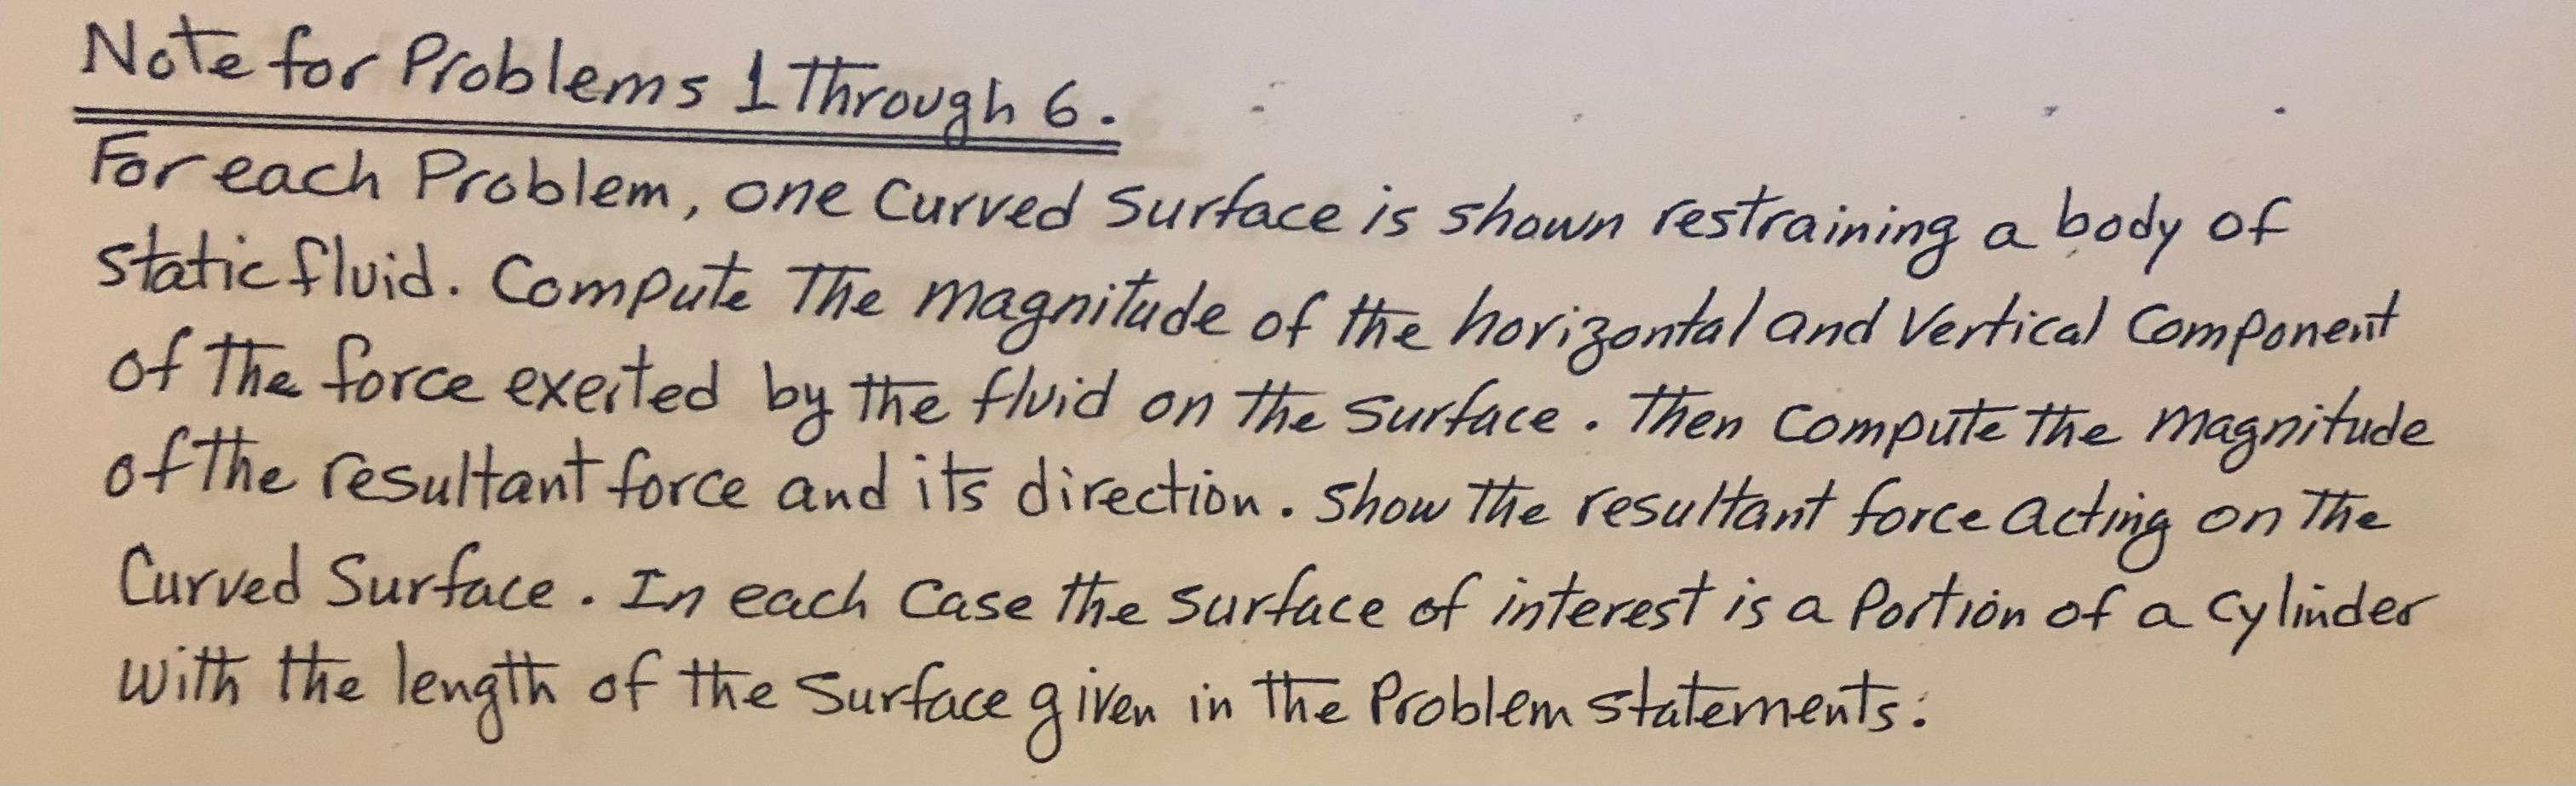 Note for Problems 1 Through 6.
For each Problem, one Curved Surface is shown restraining a body of
static fluid. Compute The magnitude of the horizontal and Vertical Component
of The force exerted by the fluid on the Surface. Then Compute the magnitude
of the resultant force and its direction. Show the resultant force acting on The
Curved Surface. In each Case the surface of interest is a Portion of a cylinder
with the length of the Surface given in the Problem statements.